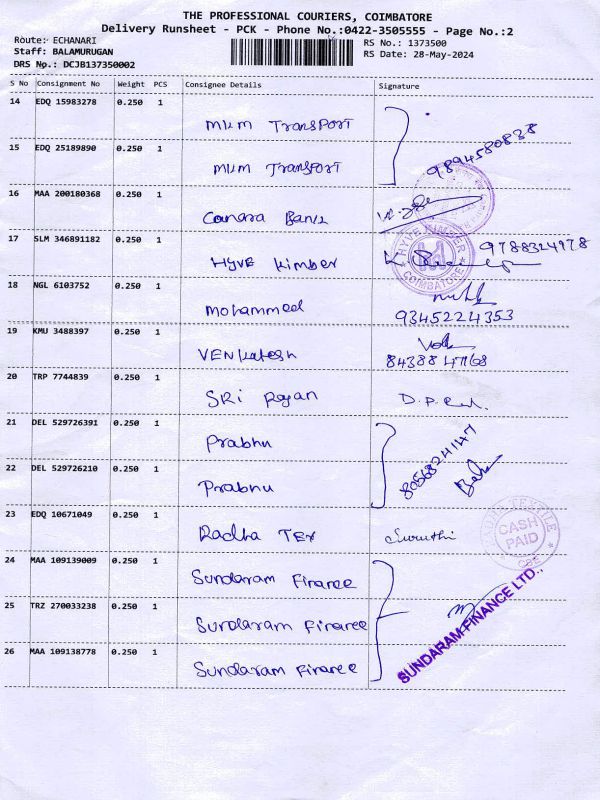 THE PROFESSIONAL COURIERS, COIMBATORE
Delivery Runsheet - PCK - Phone No.:0422-3505555 - Page No.:2
Route: ECHANARI
RS No.: 1373500
Staff: BALAMURUGAN
RS Date: 28-May-2024
DRS No.: DCJB137350002
S No Consignment No Weight PCS Consignee Details Signature
14 EDQ 15983278 0.250 1
MKM TRANSPORT
15 EDQ 25189890 0.250 1
9894580838
MKM TRANSPORT
16 MAA 200180368 0.250 1
Canara Bank
17 SLM 346891182 0.250 1
HYVE KIMBER
COIMBATORE
9788324978
HYVE Kimber
18 NGL 6103752 0.250 1
Mohammed
9345224353
19 KMU 3488397 0.250 1
VENkatesh
20 TRP 7744839 0.250 1
SRi Rajan
21 DEL 529726391 0.250 1
Prabhu
8056824147
22 DEL 529726210 0.250 1
Prabhu
23 EDQ 10671049 0.250 1
Radha Tex
Suruthi
CASH PAID
CBE
24 MAA 109139009 0.250 1
Sundaram Finance
SUNDARAM FINANCE LTD.,
25 TRZ 270033238 0.250 1
Sundaram Finance
26 MAA 109138778 0.250 1
Sundaram Finance